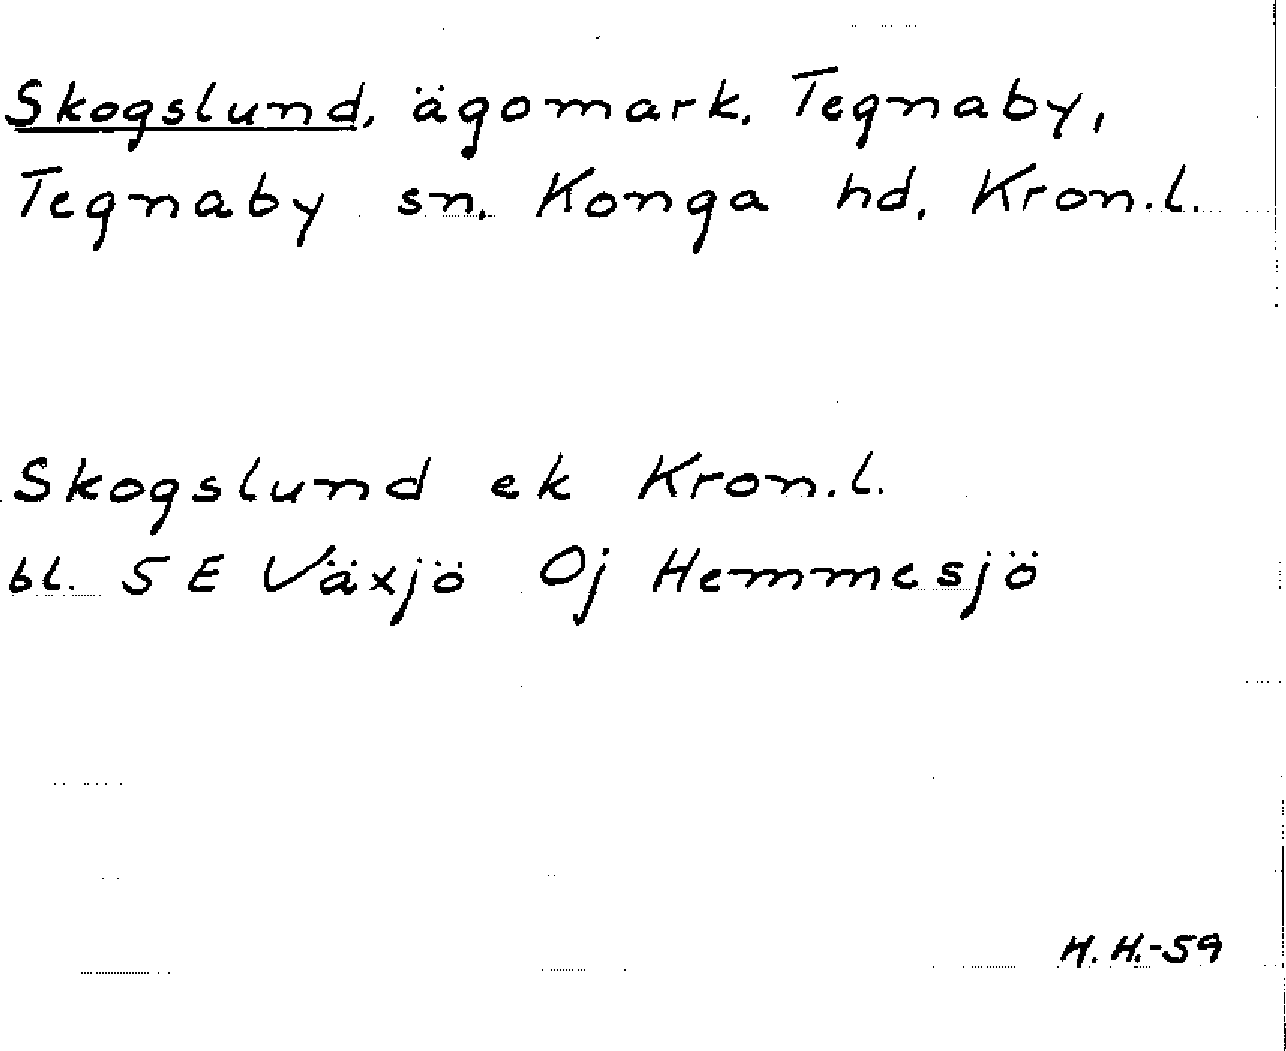 Skogslund, ägomark, Tegnaby,
Tegnaby sn. Konga hd, Kron.l.
Skogslund ek Kron.l.
bl. 5 E Växjö Oj Hemmesjö
H.H.-59